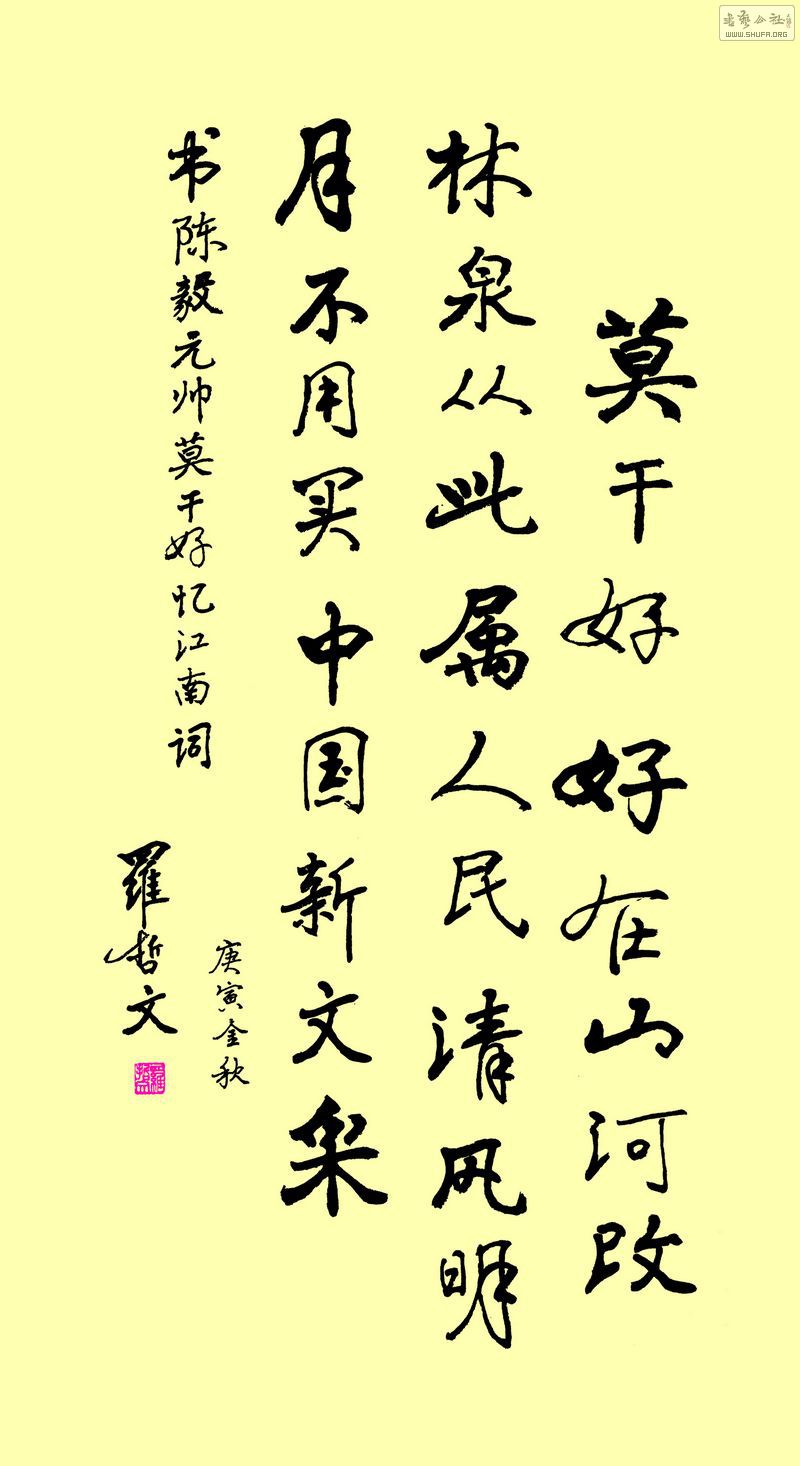 莫干好好在山河改
林泉从此属人民清风明
月不用买中国新文采
书陈毅元帅莫干好忆江南词
庚寅金秋
羅哲文
书艺公社
WWW.SHUFA.ORG